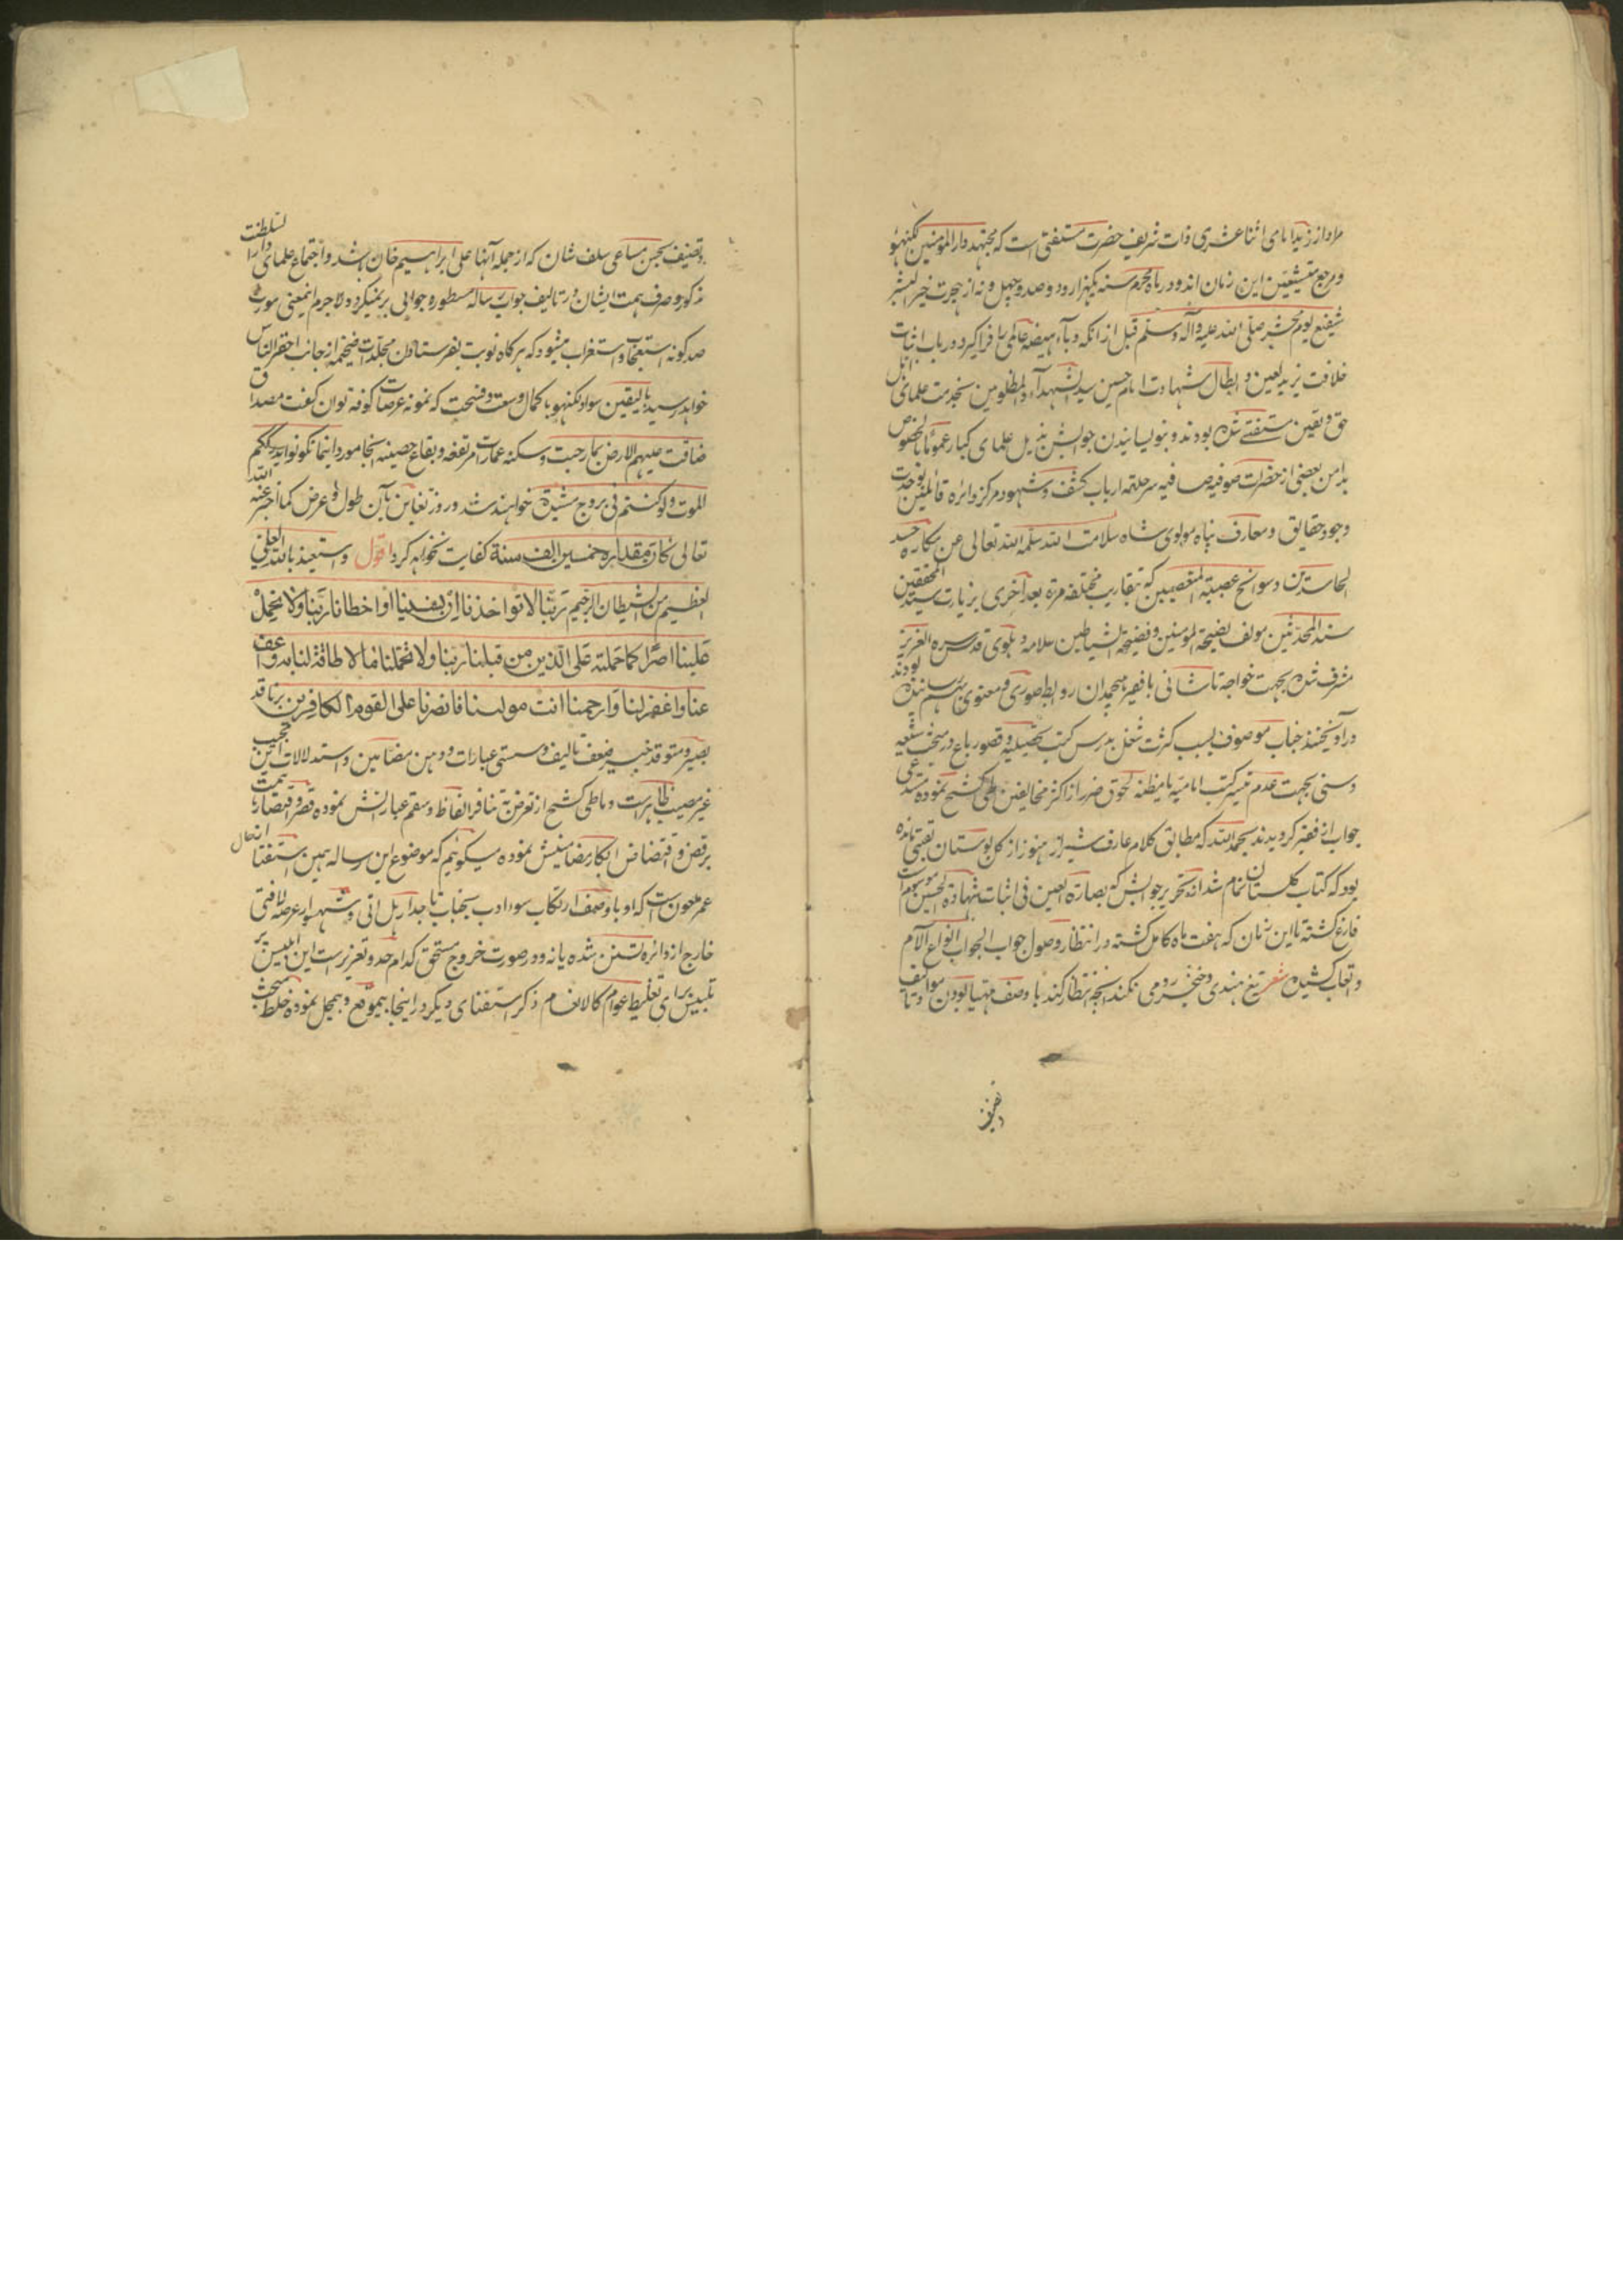 مراد از زید امامی اثنا عشری ذات شریف حضرت مستفتی است که مجتهد دار المومنین لکنهو
و مرجع متشیعین این زمان اند و در ماه محرم سنه یکهزار و دوصد و چهل و نه از هجرت خیر البشر
شفیع یوم محشر صلی الله علیه و آله و سلم قبل از انکه وباء هیضه عالمی را فراگیرد در باب اثبات
خلافت یزید لعین و ابطال شهادت امام حسین سید الشهدآء و المظلومین بخدمت علمای
حق و یقین مستفتی شده بودند و بنویسانیدن جوابش بذیل علمای کبار عموما بالخصوص
بدامن بعضی از حضرات صوفیه صافیه سر حلقه ارباب کشف و شهود مرکز دائره قائلین بوحدت
وجود حقایق و معارف پناه مولوی شاه سلامت الله سلمه الله تعالی عن مکاره حسد
الحاسدین و سوانح عصبیة المتعصبین که بتقاریب مختلفه مرة بعد اخری بزیارت سید المحققین
سند المحدثین مولف نصیحة المومنین و فضیحة الشیاطین سلامه دهلوی قدس سره العزیز
مشرف شده بجهت خواجه تاشانی با فقیر هیچمدان روابط صوری و معنوی بهم رسانیده بودند
در آویختند جناب موصوف بسبب کثرت شغل بدرس کتب تحصیلیه و قصور باع در مبحث شیعه
و سنی بجهت عدم تیسر کتب امامیه یا مظنه لحوق ضرر از اکثر مخالفین طی کشح نموده مستدعی
جواب از فقیر گردیدند بحمد الله که مطابق کلام عارف شیراز هنوز از گل بوستان بقیتی مانده
بود که کتاب گلستان تمام شد از تحریر جوابش که بصارة العین فی اثبات شهادة الحسین موسوم است
فارغ گشته تا این زمان که هفت ماه کامل گشته در انتظار وصول جواب الجواب انواع آلام
و اتعاب کشیده شعر تیغ هندی و خنجر رومی نکند آنچه انتظار کند با وصف مهیا بودن مواد تالیف
و تصنیف
و تصنیف بحسن مساعی سلف شان که از جمله آنها علی ابراهیم خان باشد و اجتماع علمای دار السلطنت
مذکور و صرف همت ایشان در تالیف جواب رساله مسطوره جوابی بر نمیگردد لا جرم اینمعنی مورث
صدگونه استعجاب و استغراب میشود که هرگاه نوبت بفرستادن مجلدات ضخیمه از جانب احقر الناس
خواهد رسید بالیقین سواد لکنهو با کمال وسعت و فسحت که نمونه عرصات کوفه توان گفت مصداق
ضاقت علیهم الارض بما رحبت و سکنه عمارات مرتفعه و بقاع حصینه آنجا مورد اینما تکونوا یدرککم
الموت ولو کنتم فی بروج مشیدة خواهند شد و روز تغابن بآن طول و عرض کما اخبر عنه الله
تعالی کان مقداره خمسین الف سنة کفایت نخواهد کرد اقول و استعیذ بالله العلی
العظیم من الشیطان الرجیم ربنا لا تواخذنا ان نسینا او اخطانا ربنا ولا تحمل
علینا اصرا کما حملته علی الذین من قبلنا ربنا ولا تحملنا ما لا طاقة لنا به واعف
عنا واغفر لنا وارحمنا انت مولینا فانصرنا علی القوم الکافرین بر ناقد
بصیر و متوقد خبیر ضعف تالیف و سستی عبارات و وهن مضامین و استدلالات این مجیب
غیر مصیب ظاهر است و ما طی کشح از تعرض به تنافر الفاظ و سقم عباراتش نموده قصر و اقتصار همت
بر قصر و اقتضاض ابکار مضامینش نموده میگوئیم که موضوع این رساله همین استفتا از حال
عمر معهود است که او با وصف ارتکاب سوء ادب بجناب تاجدار هل اتی و شهسوار عرصه لا فتی
خارج از دائره تسنن شده یا نه و در صورت خروج مستحق کدام حد و تعزیر است این ابلیس پر
تلبیس برای تغلیط عوام کالانعام ذکر استفتای دیگر در اینجا بیموقع و بیمحل نموده خلط مبحث